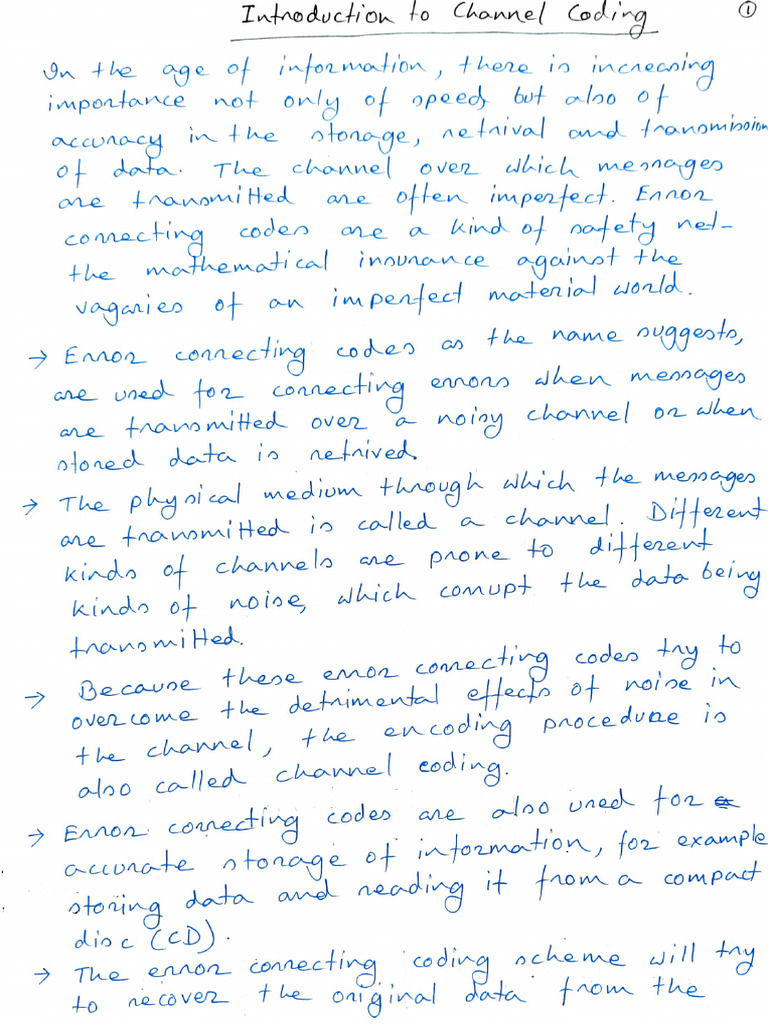 Introduction to Channel Coding ①
In the age of information, there is increasing
importance not only of speed, but also of
accuracy in the storage, retrival and transmission
of data. The channel over which messages
are transmitted are often imperfect. Error
correcting codes are a kind of safety net-
the mathematical insurance against the
vagaries of an imperfect material world.
→ Error correcting codes as the name suggests,
are used for correcting errors when messages
are transmitted over a noisy channel or when
stored data is retrived.
→ The physical medium through which the messages
are transmitted is called a channel. Different
kinds of channels are prone to different
kinds of noise, which corrupt the data being
transmitted.
→ Because these error correcting codes try to
overcome the detrimental effects of noise in
the channel, the encoding procedure is
also called channel coding.
→ Error correcting codes are also used for
accurate storage of information, for example
storing data and reading it from a compact
disc (CD).
→ The error correcting coding scheme will try
to recover the original data from the